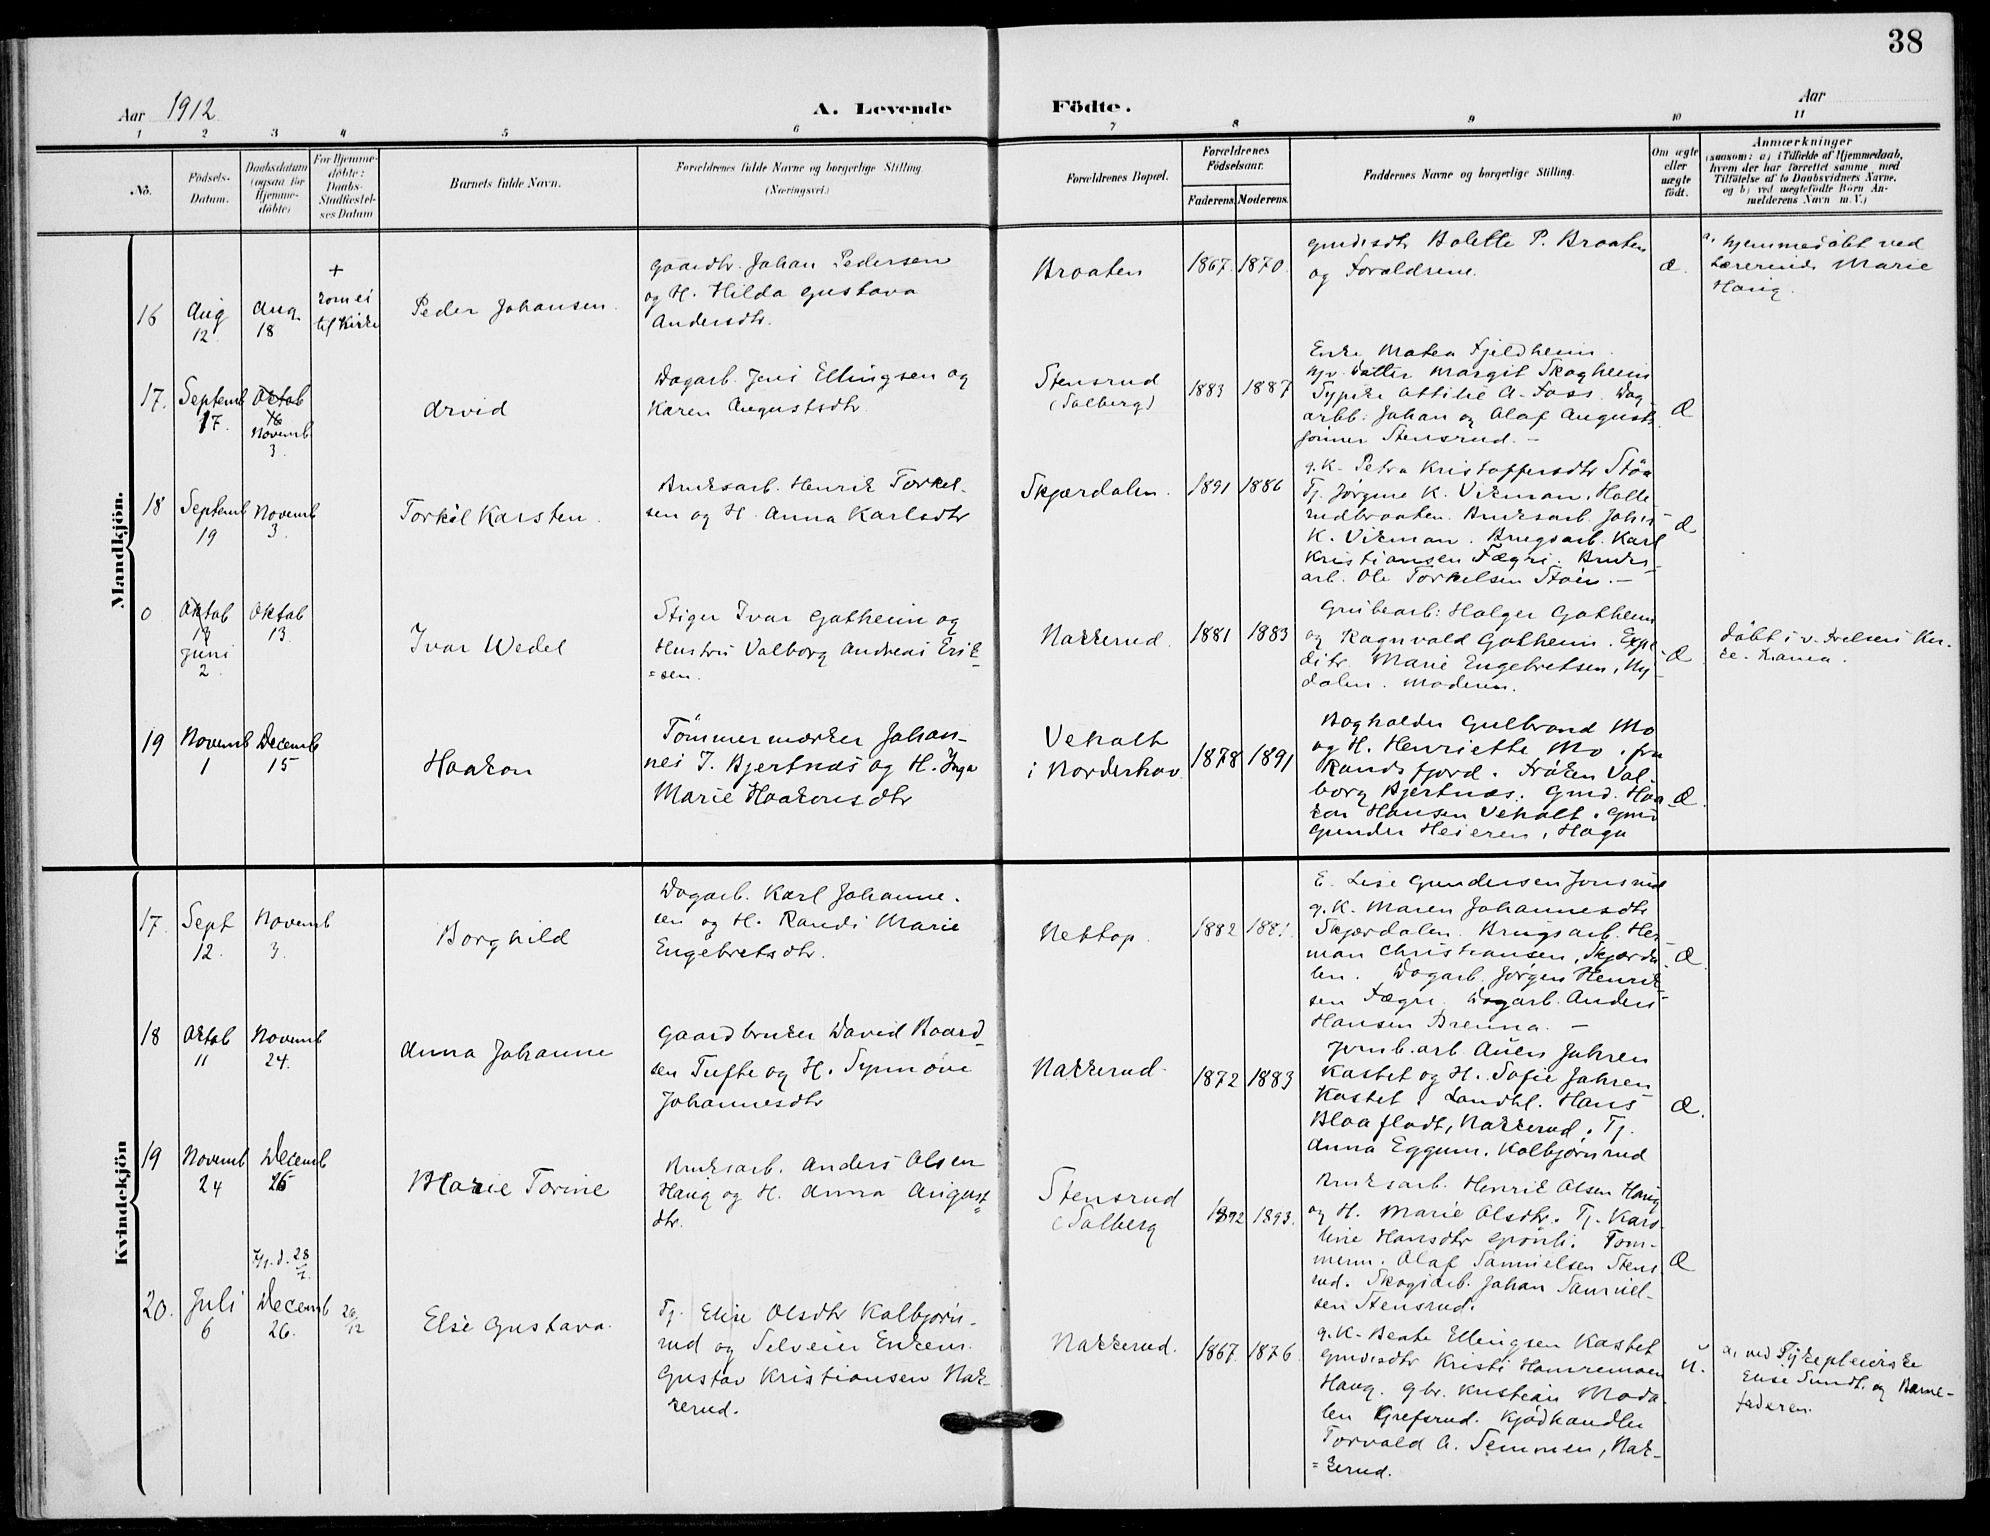 38
Aar 1912
A. Levende
Födte.
Aar
1 2 3 4 5 6 7 8 9 10 11
No.
Födsels-
Datum.
Daabsdatum
(ogsaa for
Hjemme-
döbte)
For Hjemme-
döbte:
Daabs-
Stadfæstel-
ses Datum
Barnets fulde Navn.
Forældrenes fulde Navne og borgerlige Stilling.
(Næringsvei.)
Forældrenes Bopæl.
Forældrenes
Födselsaar.
Faderens. Moderens.
Faddernes Navne og borgerlige Stilling.
Om ægte
eller
uægte
födt.
Anmærkninger
(saasom: a) i Tilfælde af Hjemmedaab,
hvem der har forrettet samme, med
Tilföielse af to Daabsvidners Navne,
og b) ved uegtefödte Börn An-
melderens Navn m. V.)
Mandkjön.
16
Aug
12.
Aug.
18
+
kom ei
til Kirke
Peder Johansen.
Gaardbr. Johan Pedersen
og H. Hilda Gustava
Andersdtr.
Braaten
1867. 1870.
Gmdsdtr Bolette P. Braaten
og Forældrene.
Æ.
a, hjemmedöbt ved
Lærerinde Marie
Haug.
17.
Septemb
17.
Oktob
Novemb
3.
Arvid
Dagarb. Jens Ellingsen og
Karen Augustsdtr.
Stensrud
(Solberg)
1883 1887
Enke Matea Fjeldheim.
Margit Skogheim
Ottilie A. Foss. Dag-
arbb. Johan og Olaf August-
sönner Stensrud. —
Æ
18
Septemb
19
Novemb
3.
Torkel Karsten.
Bruksarb. Henrik Torkel-
sen og H. Anna Karlsdtr
Skjærdalen.
1891 1886
g. K. Petra Kristoffersdtr Stöa
Tj. Jörgine K. Vikman, Halle-
rudbraaten. Bruksarb. Johs
K. Vikman. Brugsarb. Karl
Kristiansen Fægri. Bruks-
arb. Ole Torkelsen Stöen. —
Æ
0
Oktob
13
Juni
2
Oktob
13.
Ivar Wedel
Stiger Ivar Gotheim og
Hustru Valborg Andrea Erik-
=sen.
Nakkerud.
1881 1883
Grubearb: Holger Gotheim
og Ragnvald Gotheim. Expe-
ditr. Marie Engebretsen, Ny-
dalen. Moderen.
Æ
döbt i v. Frelsers Kir-
ke. Krania.
19
Novemb
1
Decemb
15
Haakon
Tömmermærker Johan-
nes J. Bjertnæs og H. Inga
Marie Haakonsdtr
Veholt
i Norderhov
1878 1891
Bogholder Gulbrand Mo
og H. Henriette Mo, fra
Randsfjord. Fröken Val-
borg Bjertnæs. Gmd. Haa-
kon Hansen Veholt. Gmd
Gunder Heieren, Haga
Æ.
Kvindekjön
17.
Sept
12.
Novemb
3.
Borghild
Dagarb. Karl Johanne-
sen og H. Randi Marie
Engebretsdtr.
Nettop.
1882 1881.
E. Lise Gundersen Jonsrud
g. K. Maren Johannesdtr
Skjærdalen. Brugsarb. Her-
man Christiansen, Skjærda-
len. Dagarb. Jörgen Henrik-
sen Fægri. Dagarb. Anders
Hansen Brenna. —
Æ.
18
Oktob
11
Novemb
24.
Anna Johanne
Gaardbruker David Baard-
sen Tufte og H. Synnöve
Johannesdtr
Nakkerud.
1872 1883
Jernb.arb. Juhren
Kastet og H. Sofie Juhren
Kastet. Landhl. Hans
Blaafladt, Nakkerud. Tj.
Anna Eggum, Kolbjörnsrud
Æ.
19
Novemb
24
Decemb
26
Marie Torine
Bruksarb. Anders Olsen
Haug og H. Anna August-
dtr.
Stensrud
(Solberg
1892 1893.
Bruksarb. Henrik Olsen Haug
og H. Marie Olsdtr. Tj. Karo-
line Hansdtr Töm-
merm. Olaf Samuelsen Stens-
rud. Skogsarb. Johan Samuel-
sen Stensrud.
Æ
20.
Juli
6
28
Decemb
26.
26/12
Else Gustava.
Tj. Elise Olsdtr Kolbjörns-
rud og Selveier Enkem.
Gustav Kristiansen Nak-
kerud.
Nakkerud.
1867. 1876.
g. K. Beate Ellingsen Kastet
Gmdsdtr Kristi Hamremoen
Haug. Gbr. Kristian Moda-
len Grefsrud. Kjödhandler
Torvald A. Semmen, Nak-
=kerud.
u.
a, ved Sykepleierske
Elise Sundt, og Barne-
faderen.